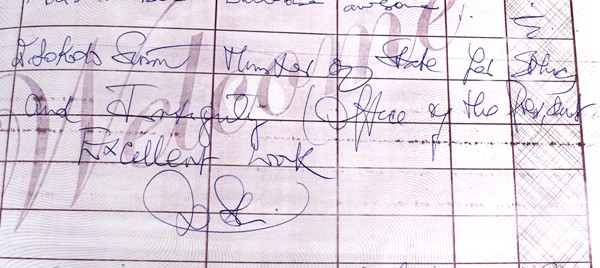 awesome !
Lokodo Simon Minister of State for Ethics
and Integrity (Office of the President
Excellent work
Welcome